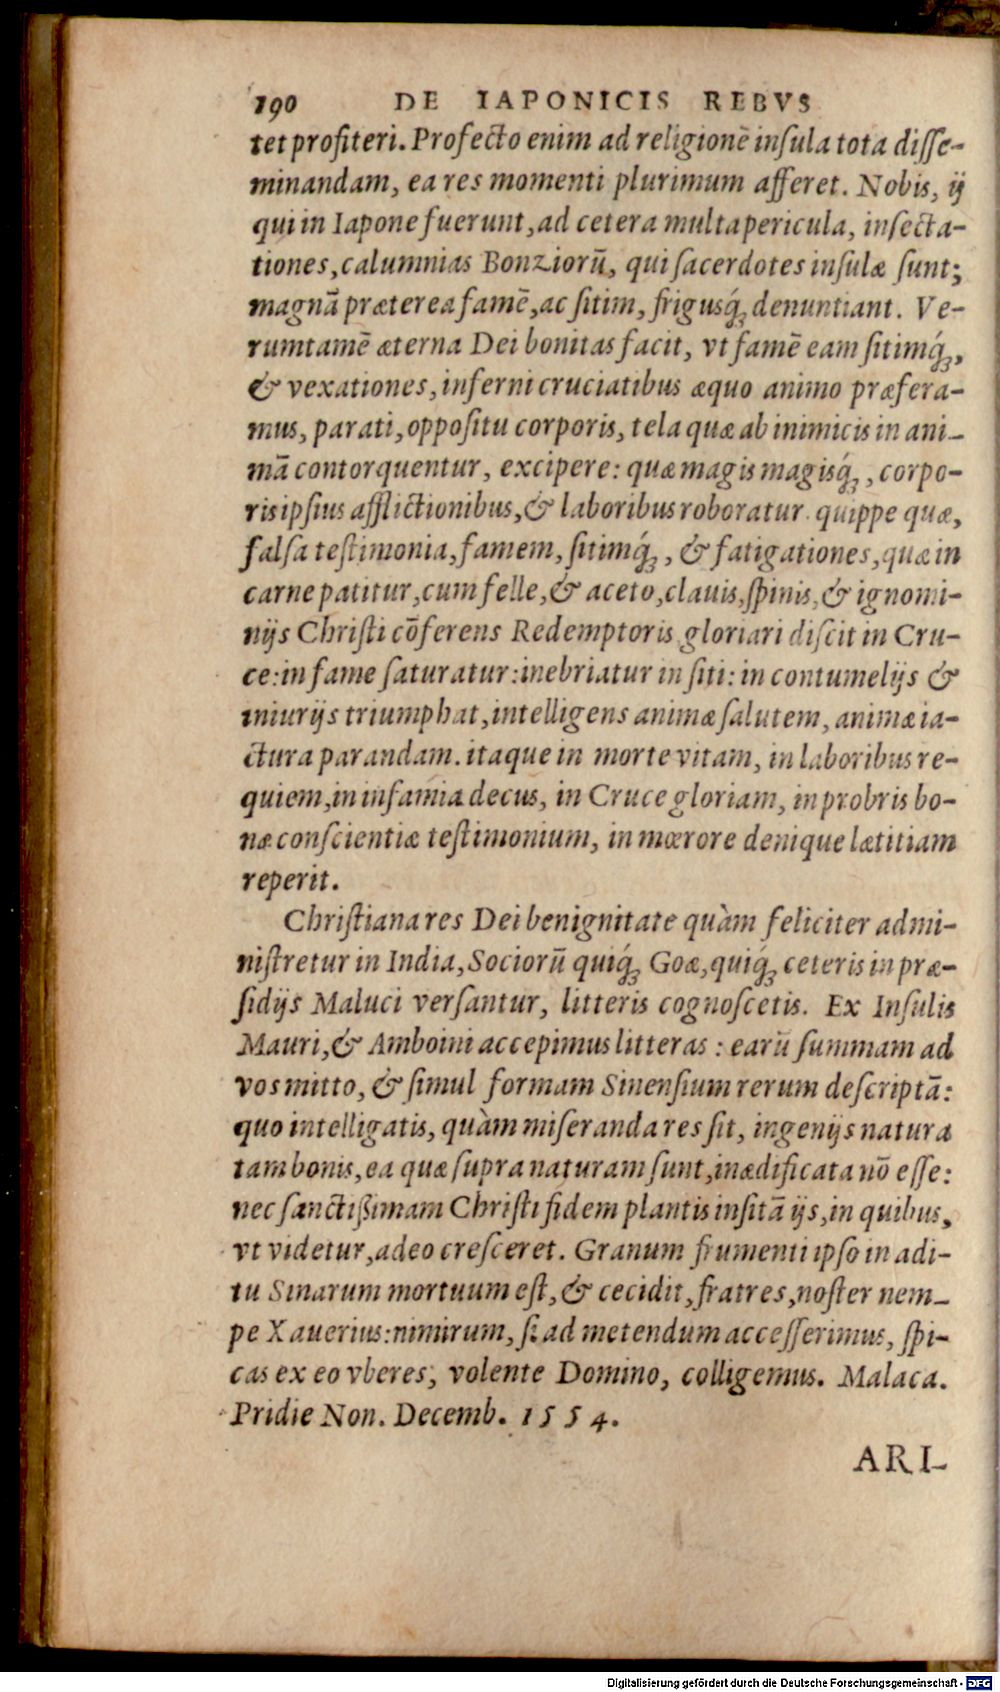 190 DE IAPONICIS REBVS
tet profiteri. Profecto enim ad religionē insula tota disse-
minandam, ea res momenti plurimum afferet. Nobis, ij
qui in Iapone fuerunt, ad cetera multa pericula, insecta-
tiones, calumnias Bonziorū, qui sacerdotes insulæ sunt;
magnā præterea famē, ac sitim, frigusq́; denuntiant. Ve-
rumtamē æterna Dei bonitas facit, vt famē eam sitimq́;,
& vexationes, inferni cruciatibus æquo animo præfera-
mus, parati, oppositu corporis, tela quæ ab inimicis in ani-
mā contorquentur, excipere: quæ magis magisq́;, corpo-
ris ipsius afflictionibus, & laboribus roboratur. quippe quæ,
falsa testimonia, famem, sitimq́;, & fatigationes, quæ in
carne patitur, cum felle, & aceto, clauis, spinis, & ignomi-
nijs Christi cōferens Redemptoris gloriari discit in Cru-
ce: in fame saturatur: inebriatur in siti: in contumelijs &
iniurijs triumphat, intelligens animæ salutem, animæ ia-
ctura parandam. itaque in morte vitam, in laboribus re-
quiem, in infamia decus, in Cruce gloriam, in probris bo-
næ conscientiæ testimonium, in mœrore denique lætitiam
reperit.
Christiana res Dei benignitate quàm feliciter admi-
nistretur in India, Sociorū quiq́; Goæ, quiq́; ceteris in præ-
sidijs Maluci versantur, litteris cognoscetis. Ex Insulis
Mauri, & Amboini accepimus litteras: earū summam ad
vos mitto, & simul formam Sinensium rerum descriptā:
quo intelligatis, quàm miseranda res sit, ingenijs natura
tam bonis, ea quæ supra naturam sunt, inædificata nō esse:
nec sanctißimam Christi fidem plantis insitā ijs, in quibus,
vt videtur, adeo cresceret. Granum frumenti ipso in adi-
tu Sinarum mortuum est, & cecidit, fratres, noster nem-
pe Xauerius: nimirum, si ad metendum accesserimus, spi-
cas ex eo vberes, volente Domino, colligemus. Malaca.
Pridie Non. Decemb. 1554.
ARI-
Digitalisierung gefördert durch die Deutsche Forschungsgemeinschaft - DFG